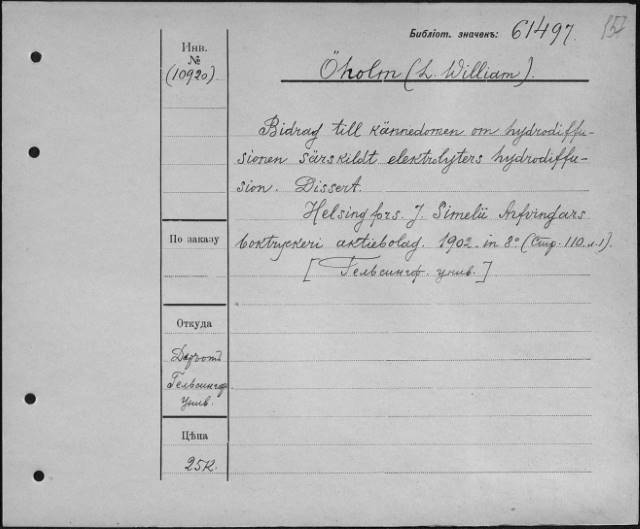 Библіот. значекъ: 61497.
157
Инв.
№
(10920)
Öholm (L. William).
Bidrag till kännedomen om hydrodiffu-
sionen särskildt elektrolyters hydrodiffu-
sion. Dissert.
Helsingfors. J. Simelii Arfvingars
boktryckeri aktiebolag. 1902. in 8° (Стр. 110.л.1).
[Гельсингф. унив.]
По заказу
Откуда
Гельсингф.
унив.
Цѣна
25к.